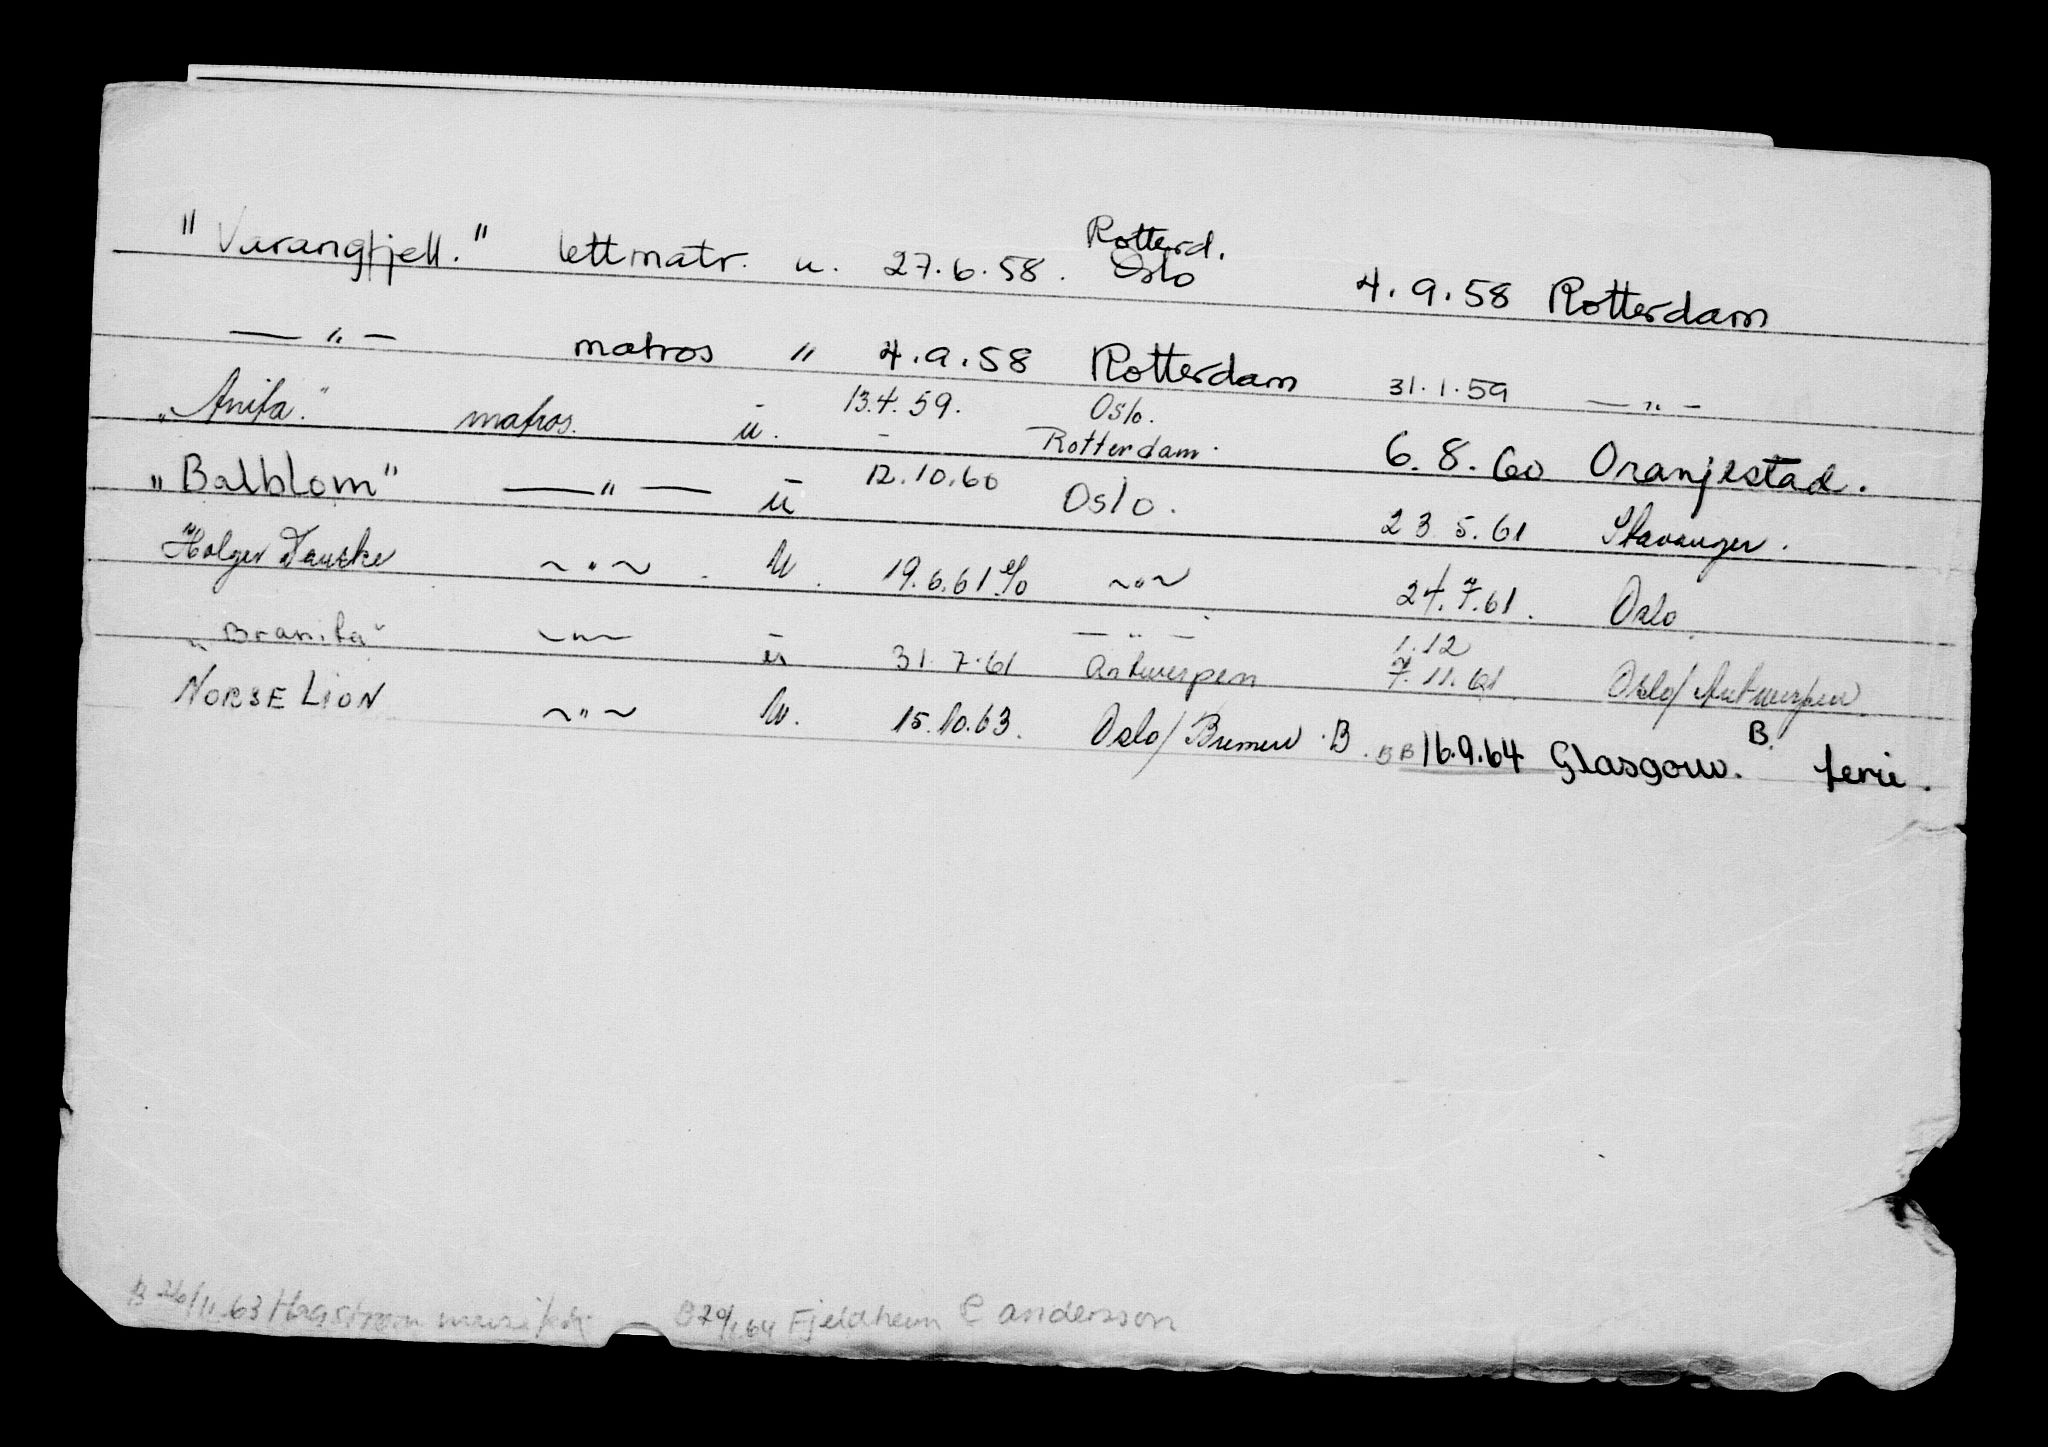 "Varangfjell." lettmatr. u. 27.6.58. Rotterd. Oslo 4.9.58 Rotterdam
— " — matros " 4.9.58 Rotterdam 31.1.59 — " —
"Anita." matros. ū. 13.4.59. – Oslo. Rotterdam. 6.8.60 Oranjestad.
"Balblom" — " — ū 12.10.60 Oslo. 23.5.61 Stavanger.
"Holger Danske ~ " ~ . U. 19.6.61 ~ " ~ 24.7.61. Oslo
"Branita" ~ " ~ ū 31.7.61 — " — Antwerpen 1.12 7.11.61. Oslo/Antwerpen
NORSE LION ~ " ~ U. 15.10.63. Oslo/Bremen . B. BB 16.9.64 Glasgow. B. ferie.
B 26/11.63 Hagstrøm B 20/1.64 Fjeldheim C andersson